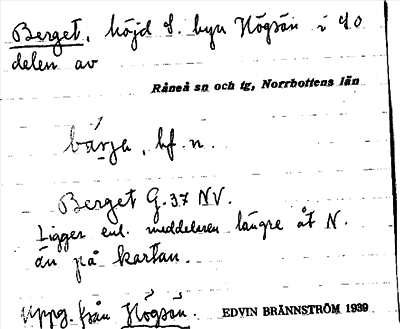 Berget, höjd S. byn Högsön i SO
delen av
Råneå sn och tg, Norrbottens län
bärja, bf. n.
Berget G.37 NV.
Ligger enl. meddelaren längre åt N.
än på kartan.
Uppg. från Högsön. EDVIN BRÄNNSTRÖM 1939